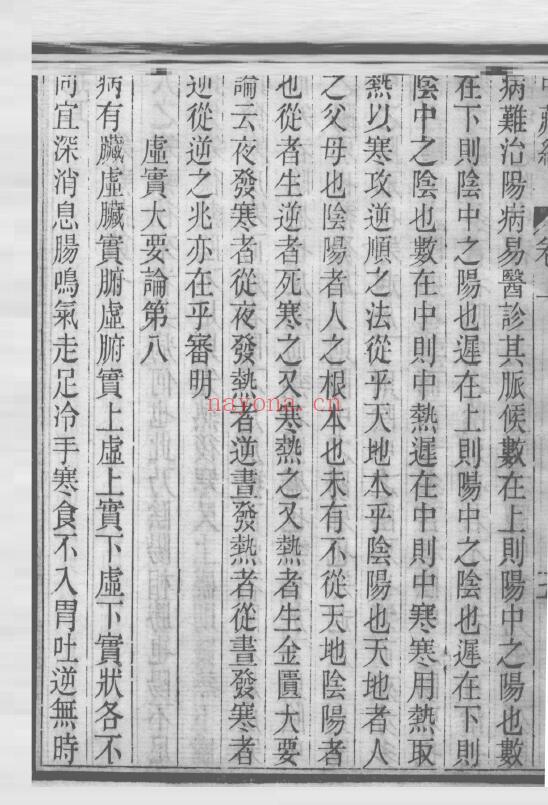 病難治陽病易醫診其脈候數在上則陽中之陽也數
在下則陰中之陽也遲在上則陽中之陰也遲在下則
陰中之陰也數在中則中熱遲在中則中寒寒用熱取
熱以寒攻逆順之法從乎天地本乎陰陽也天地者人
之父母也陰陽者人之根本也未有不從天地陰陽者
也從者生逆者死寒之又寒熱之又熱者生金匱大要
論云夜發寒者從夜發熱者逆晝發熱者從晝發寒者
逆從逆之兆亦在乎審明
虛實大要論第八
病有臟虛臟實腑虛腑實上虛上實下虛下實狀各不
同宜深消息腸鳴氣走足冷手寒食不入胃吐逆無時
nayona.cn